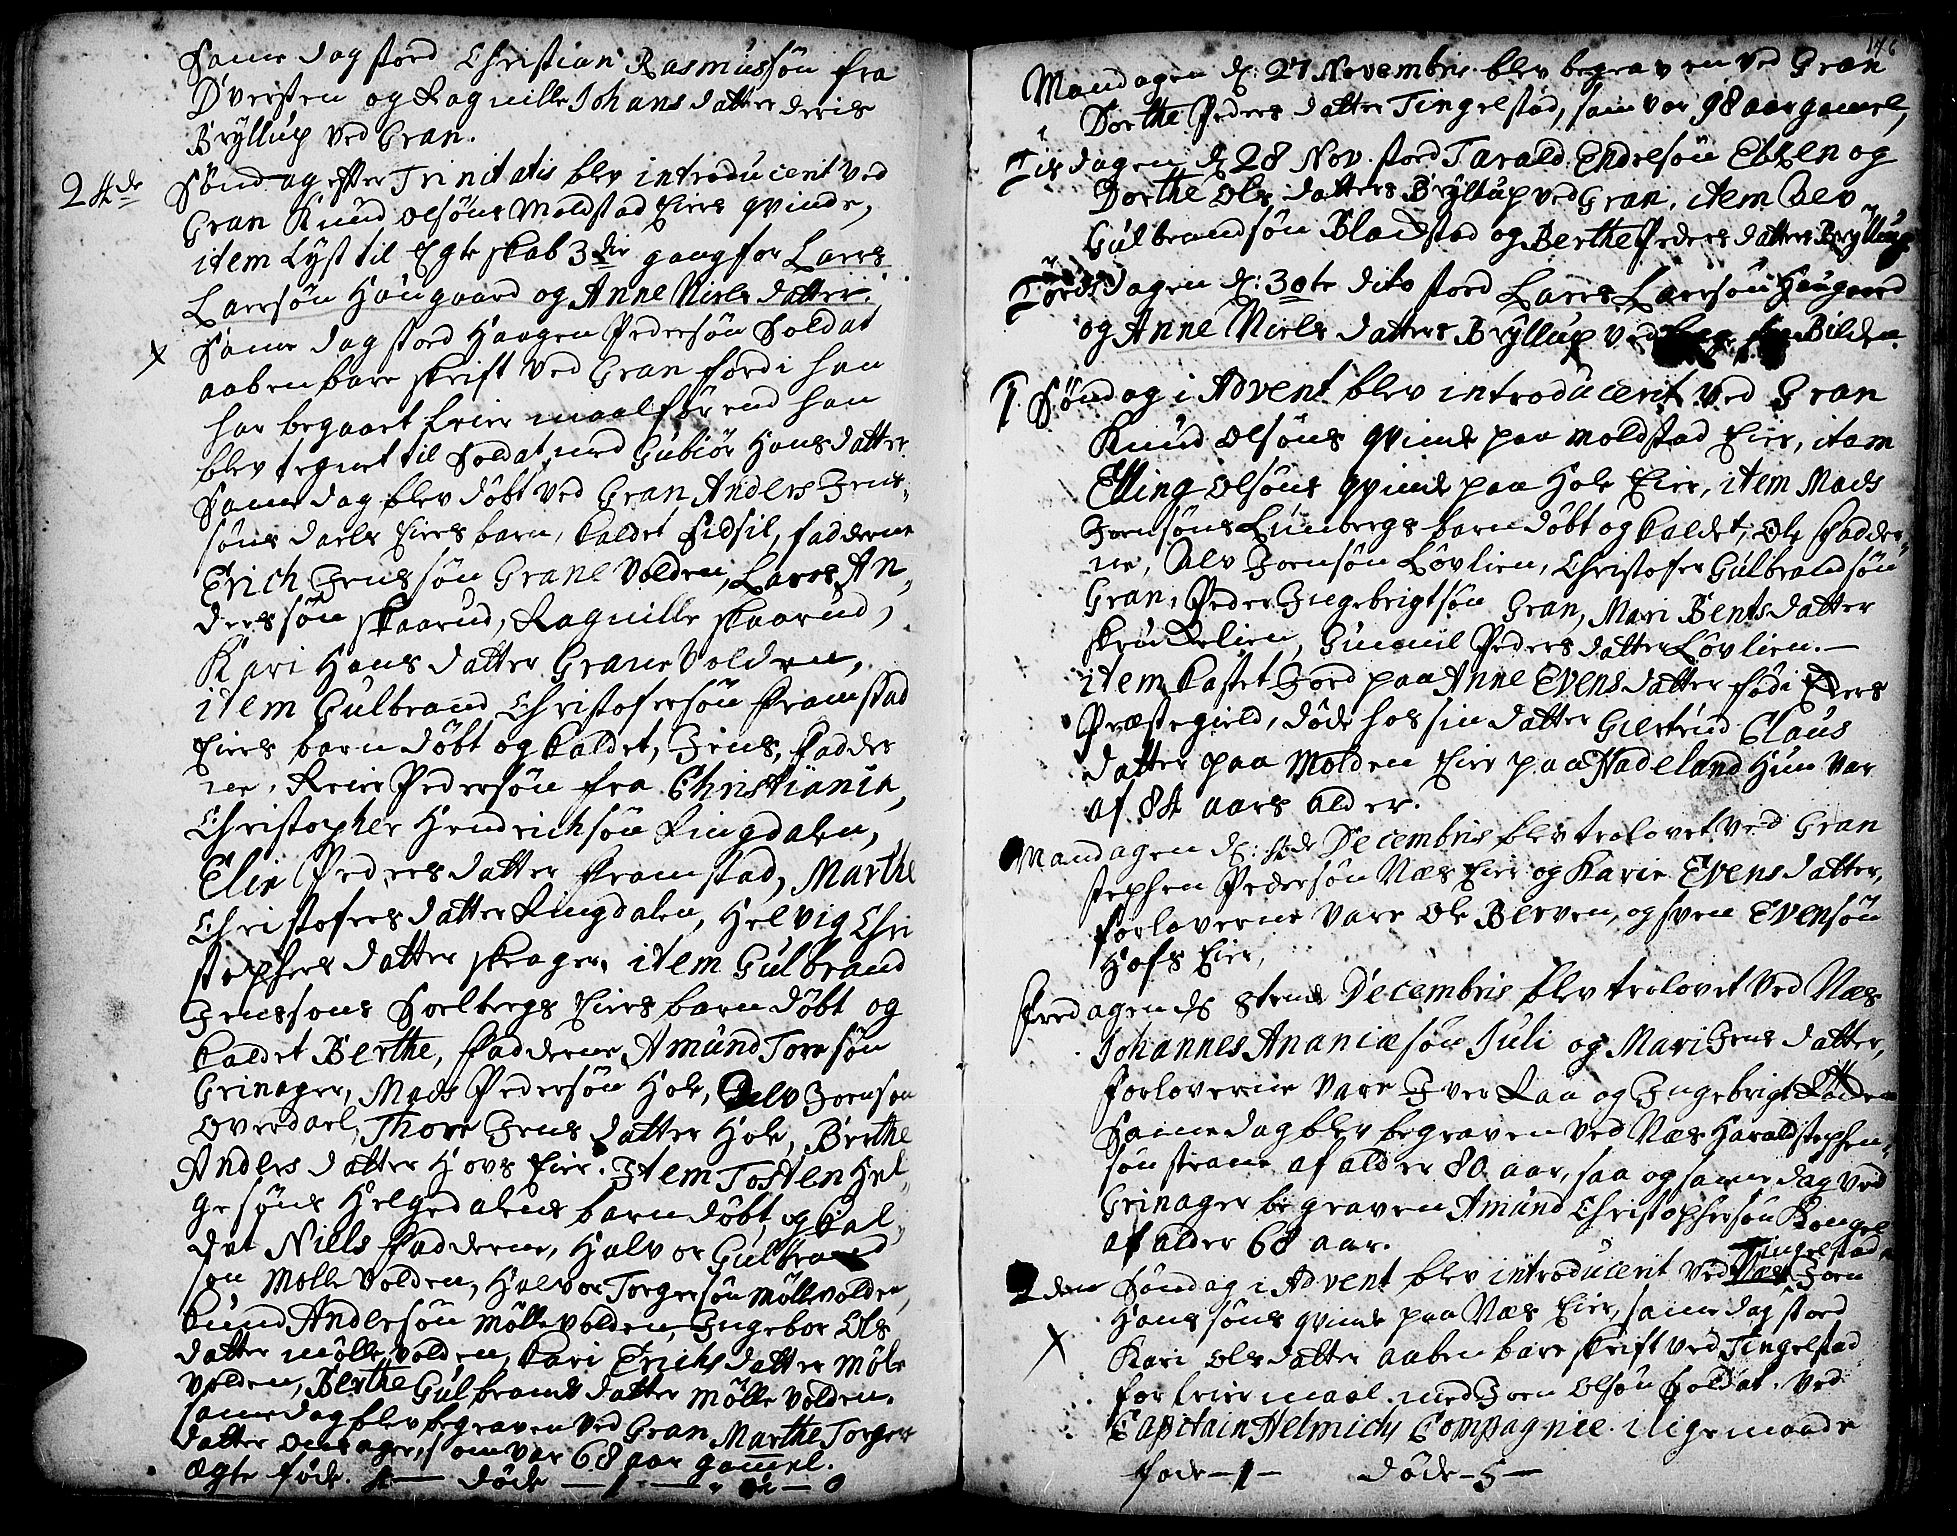 Same dag stod Christian Rasmussøn fra
Dversten og Ragnille Johans datter deris
Bryllup ved Gran.
24de Søndag efter Trinitatis blev introducerit ved
Gran Knud Olsøns Molstad Eiers qvinde,
item lyst til Egteskab 3die gang for Lars
Larsøn Haugaard og Anne Niels datter.
Same dag stod Haagen Pedersøn Soldat
aabenbare skrift ved Gran fordi han
har begaaet leiermaal førend han
blev tegnet til Soldat, med Gubiør Hans datter
Same dag blev døbt ved Gran Anders Jens
søns daels Eiers barn, kaldet Sidsil, fadderne
Erich Jenssøn Granevolden, Lars An,
derssøn skaarud, Ragnille skaarud,
Kari Hans datter Granevolden,
item Gulbrand Christofersøn Framstad
Eiers barn døbt og kaldet, Jens, fadder
ne, Reier Pedersøn fra Christiania,
Christopher Hendrichsøn Ringdalen,
Elin Peders datter Framstad, Marthe
Christofers datter Ringdalen, Helvig Chri
stophers datter skrager, item Gulbrand
Jenssøns Soelbergs Eiers barn døbt og
kaldet Berthe, fadderne Amund Torsøn
Grinager, Mads Pedersøn Hole, Alv Joensøn
Overdael, Thore Jens datter Hole, Berthe
Anders datter Hovs Eier. Item Tosten Hel,
gesøns Helgedalens barn døbt og kal,
det Niels fadderne, Halvor Gulbrand
søn Mollevolden, Halvor Torgersøn Møllevolden,
knud Andersøn møllevolden, Ingebor Ols
datter møllevolden, kari Erichs datter Mølle
volden, Berthe Gulbrands datter Møllevolden.
same dag blev begraven ved Gran Marthe Torger
datter Onsager, som var 68 aar gamel.
ægte føde. 4 — døde — 1 —
146
Mandagen d: 27 Novembris blev begraven ved Gran
Dorthe Peders datter Tingelstad, som var 98 aar gamel,
Tisdagen d 28 Nov. stod Tarald Endresøn Ebben og
Dorthe Ols datters Bryllup ved Gran, item Alev
Gulbrandsøn Bladstad og Berthe Peders datters Bryllup
Torsdagen d: 30te dito stod Lars Larsøn Haugaard
og Anne Niels datters Bryllup ved Bilden.
1 Søndag i Advent blev introducerit ved Gran
Knud Olsøns qvinde paa Molstad Eier, item
Elling Olsøns qvinde paa Hole Eier, item Mads
Joensøns Lunbergs barn døbt og kaldet, Ole fadder,
ne, Alv Joensøn Løvlien, Christofer Gulbrandsøn
Gran, Peder Ingebrigtsøn Gran, Mari Bents datter
skrukkelien, Gunnil Peders datter Løvlien.—
item kastet Jord paa Anne Evens datter fød i Eiers
Præstegield, døde hos sin datter Giertrud Claus
datter paa Molden Eier paa Hadeland Hun var
af 84 aars alder.
Mandagen d: 4de Decembris blev trolovet ved Gran
stephen Pedersøn Næs Eier og Karie Evens datter,
forloverne vare Ole Berven, og sven Evensøn
Hofs Eier,
Fredagen d 8tende Decembris blev trolovet ved Næs
Johannes Ananiæsøn Juli og Mari Jens datter,
forloverne vare Iver Raa og Ingebrigt
Same dag blev begraven ved Næs Harald stephen,
søn strane af alder 80 aar, saa og same dag ved
Grinager begraven Amund Christophersøn
af alder 68 aar.
2den Søndag i Advent blev introducerit ved Tingelstad Joen
Hanssøns qvinde paa Næs Eier, same dag stod
Kari Ols datter aabenbare skrift ved Tingelstad
for leiermaal med Joen Olsøn soldat ved
Capitain Helmichs Compagnie. iligemaade
føde — 1 — døde — 5 —